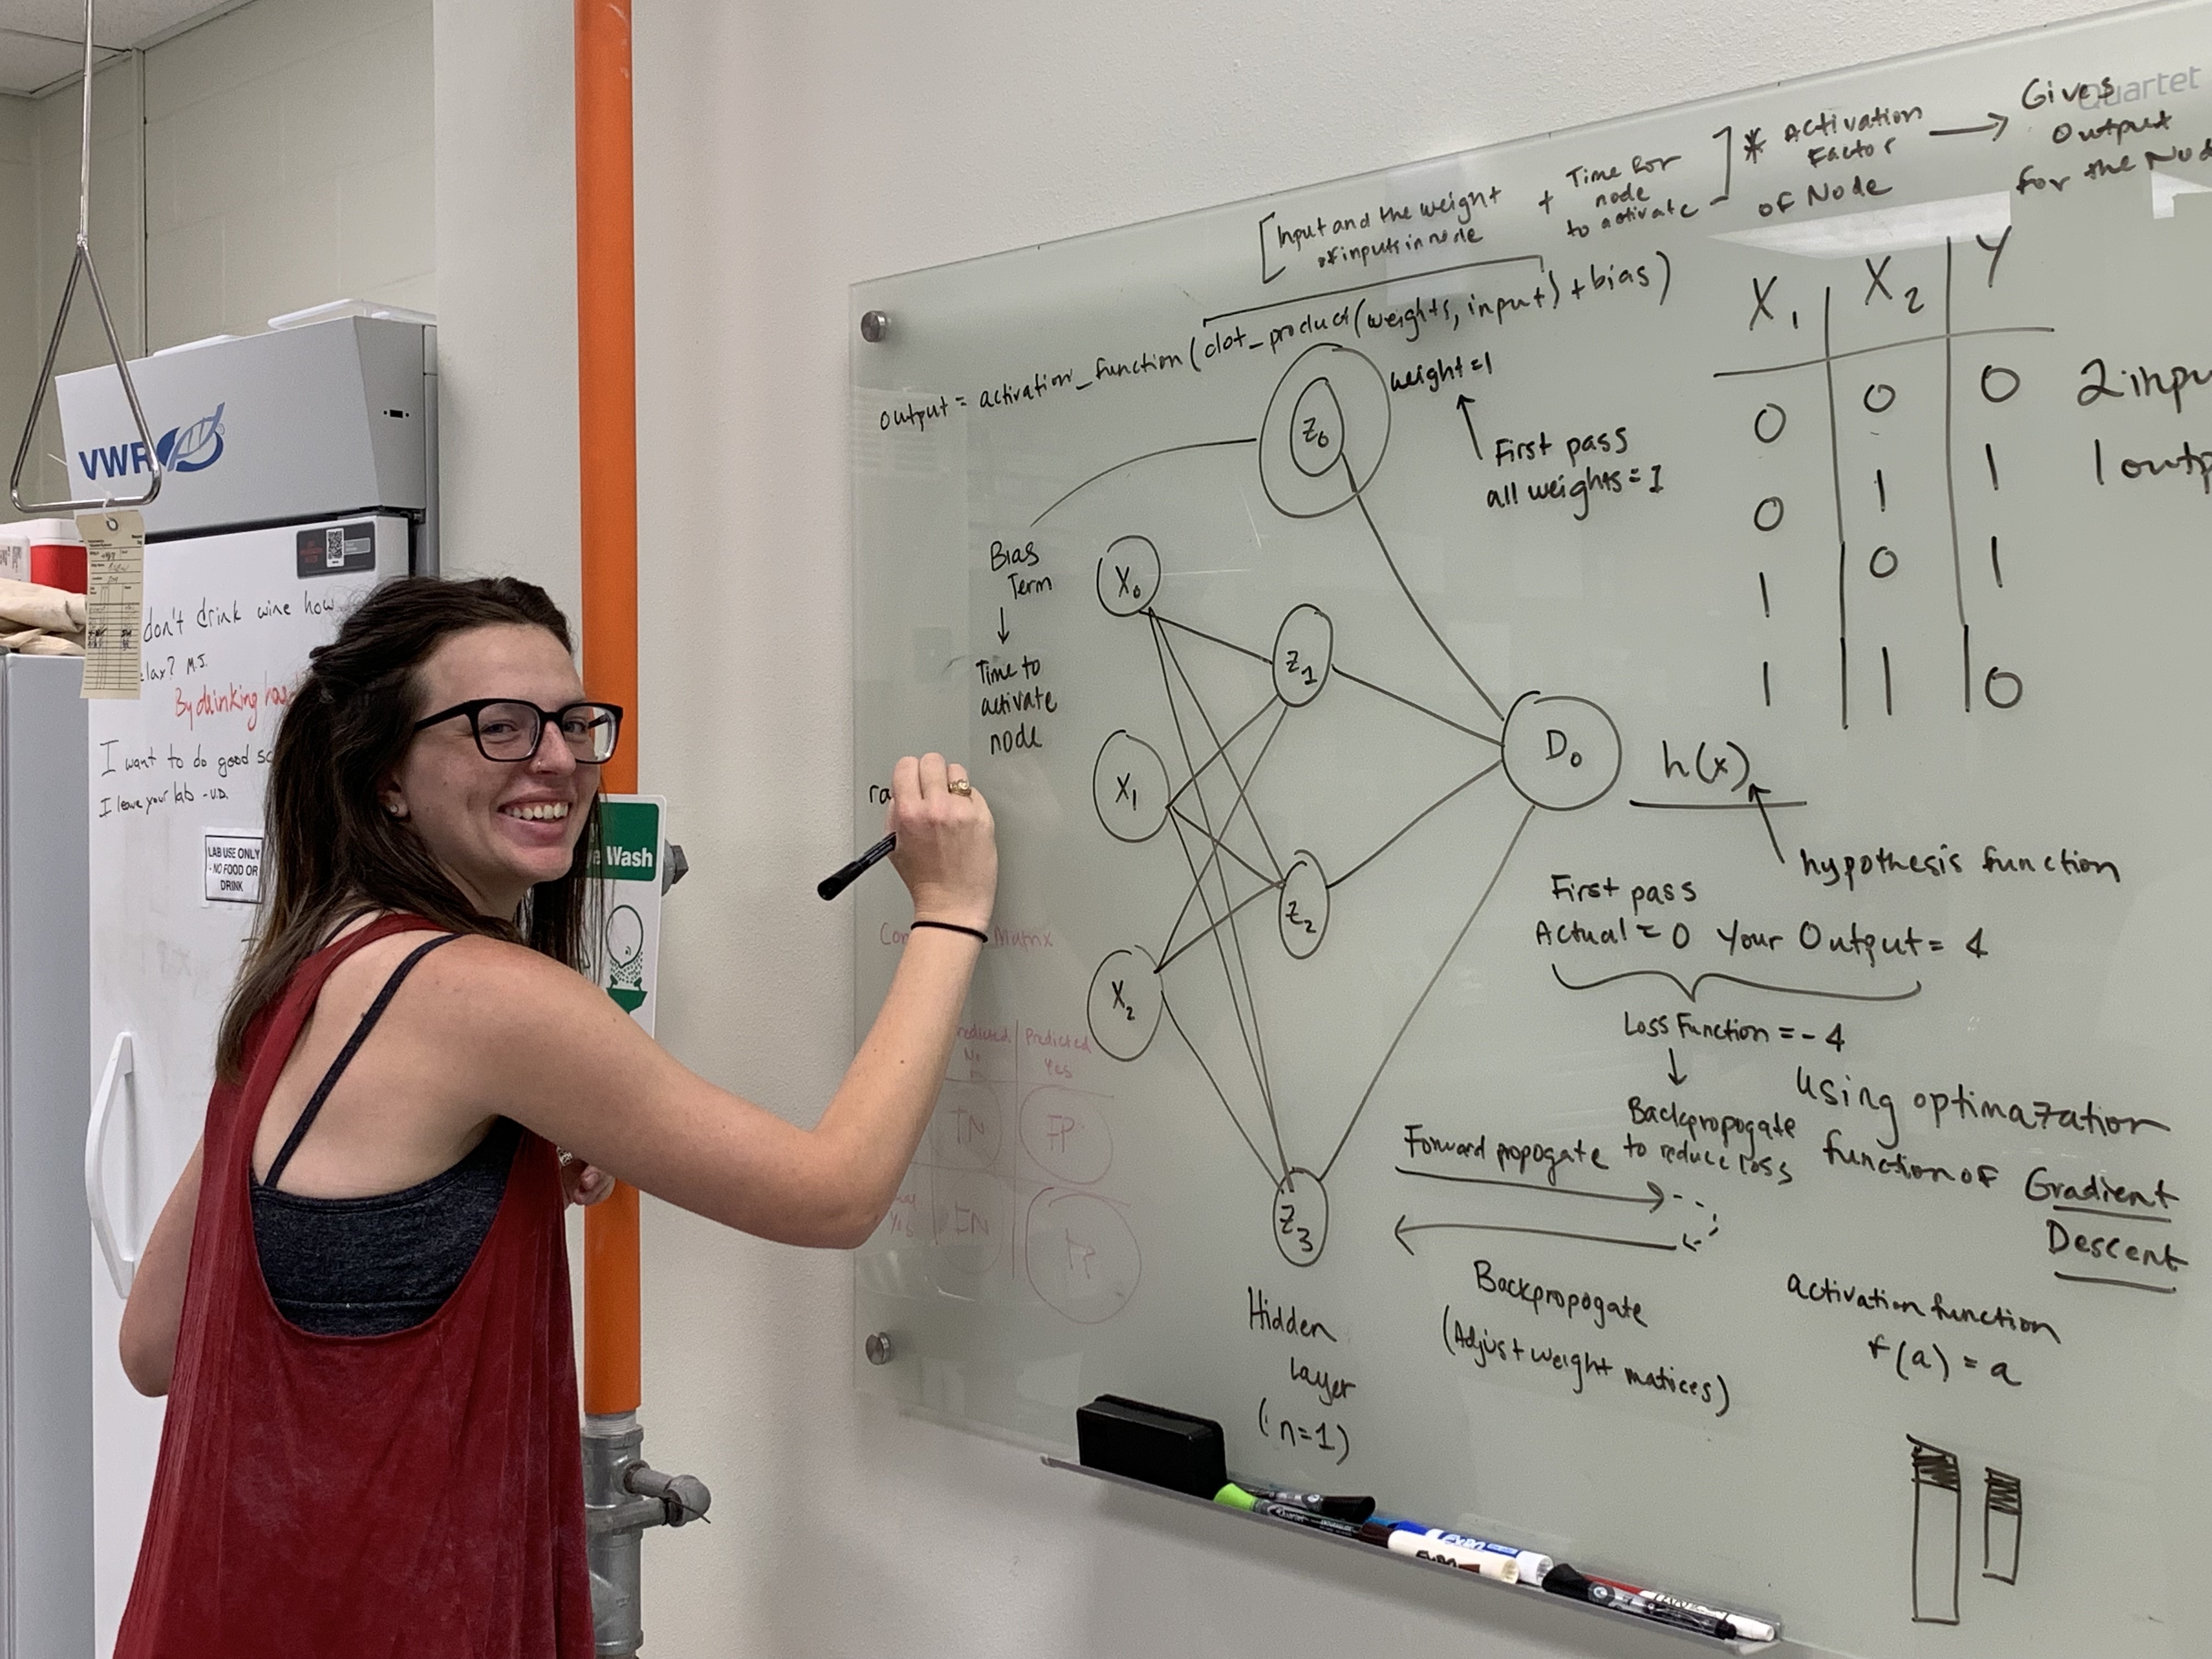 Quartet
Gives
Output
for the Nod
* Activation
Factor
of Node
[Input and the weight
of inputs in node
+ Time for
node
to activate ]
output = activation_function(dot_product(weights, input) + bias)
weight=1
First pass
all weights=1
X1 X2 Y
0 0 0
0 1 1
1 0 1
1 1 0
2 inpu
1 outp
Z0
Bias
Term
Time to
activate
node
X0
X1
X2
Z1
Z2
Z3
D0
h(x)
hypothesis function
First pass
Actual = 0 Your Output = 4
Loss Function = -4
Backpropogate
to reduce loss
using optimazation
function of Gradient
Descent
Forward propogate
Backpropogate
(Adjust weight matices)
activation function
f(a) = a
Hidden
Layer
(n=1)
ra
Con Matrix
Predicted
Yes
TN FP
Yes
FN TP
VWR
don't drink wine how
elax? M.J.
By drinking
I want to do good sc
I leave your lab -U.D.
LAB USE ONLY
- NO FOOD OR
DRINK
e Wash
EXPO